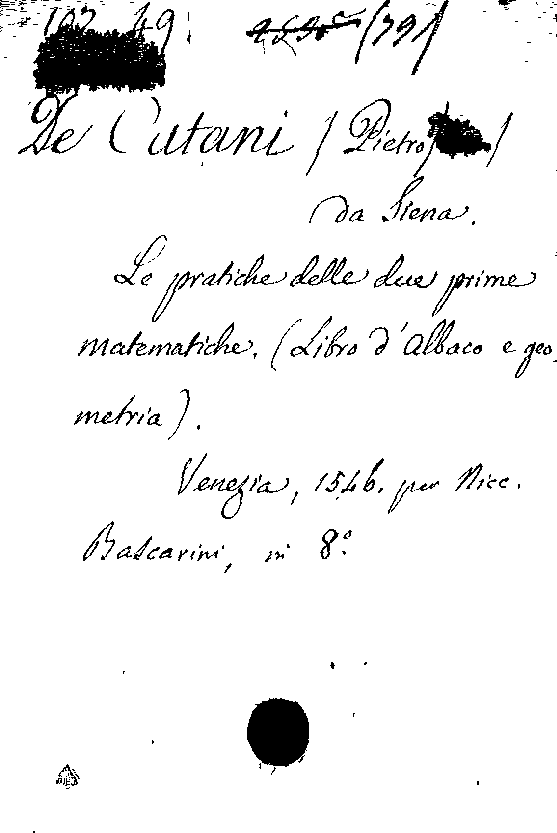 107 49.
(791)
De Catani (Pietro)
da Siena.
Le pratiche delle due prime
matematiche. (Libro d'Albaco e geo,
metria).
Venezia, 1546. per Nicc.
Bascarini, in 8º.